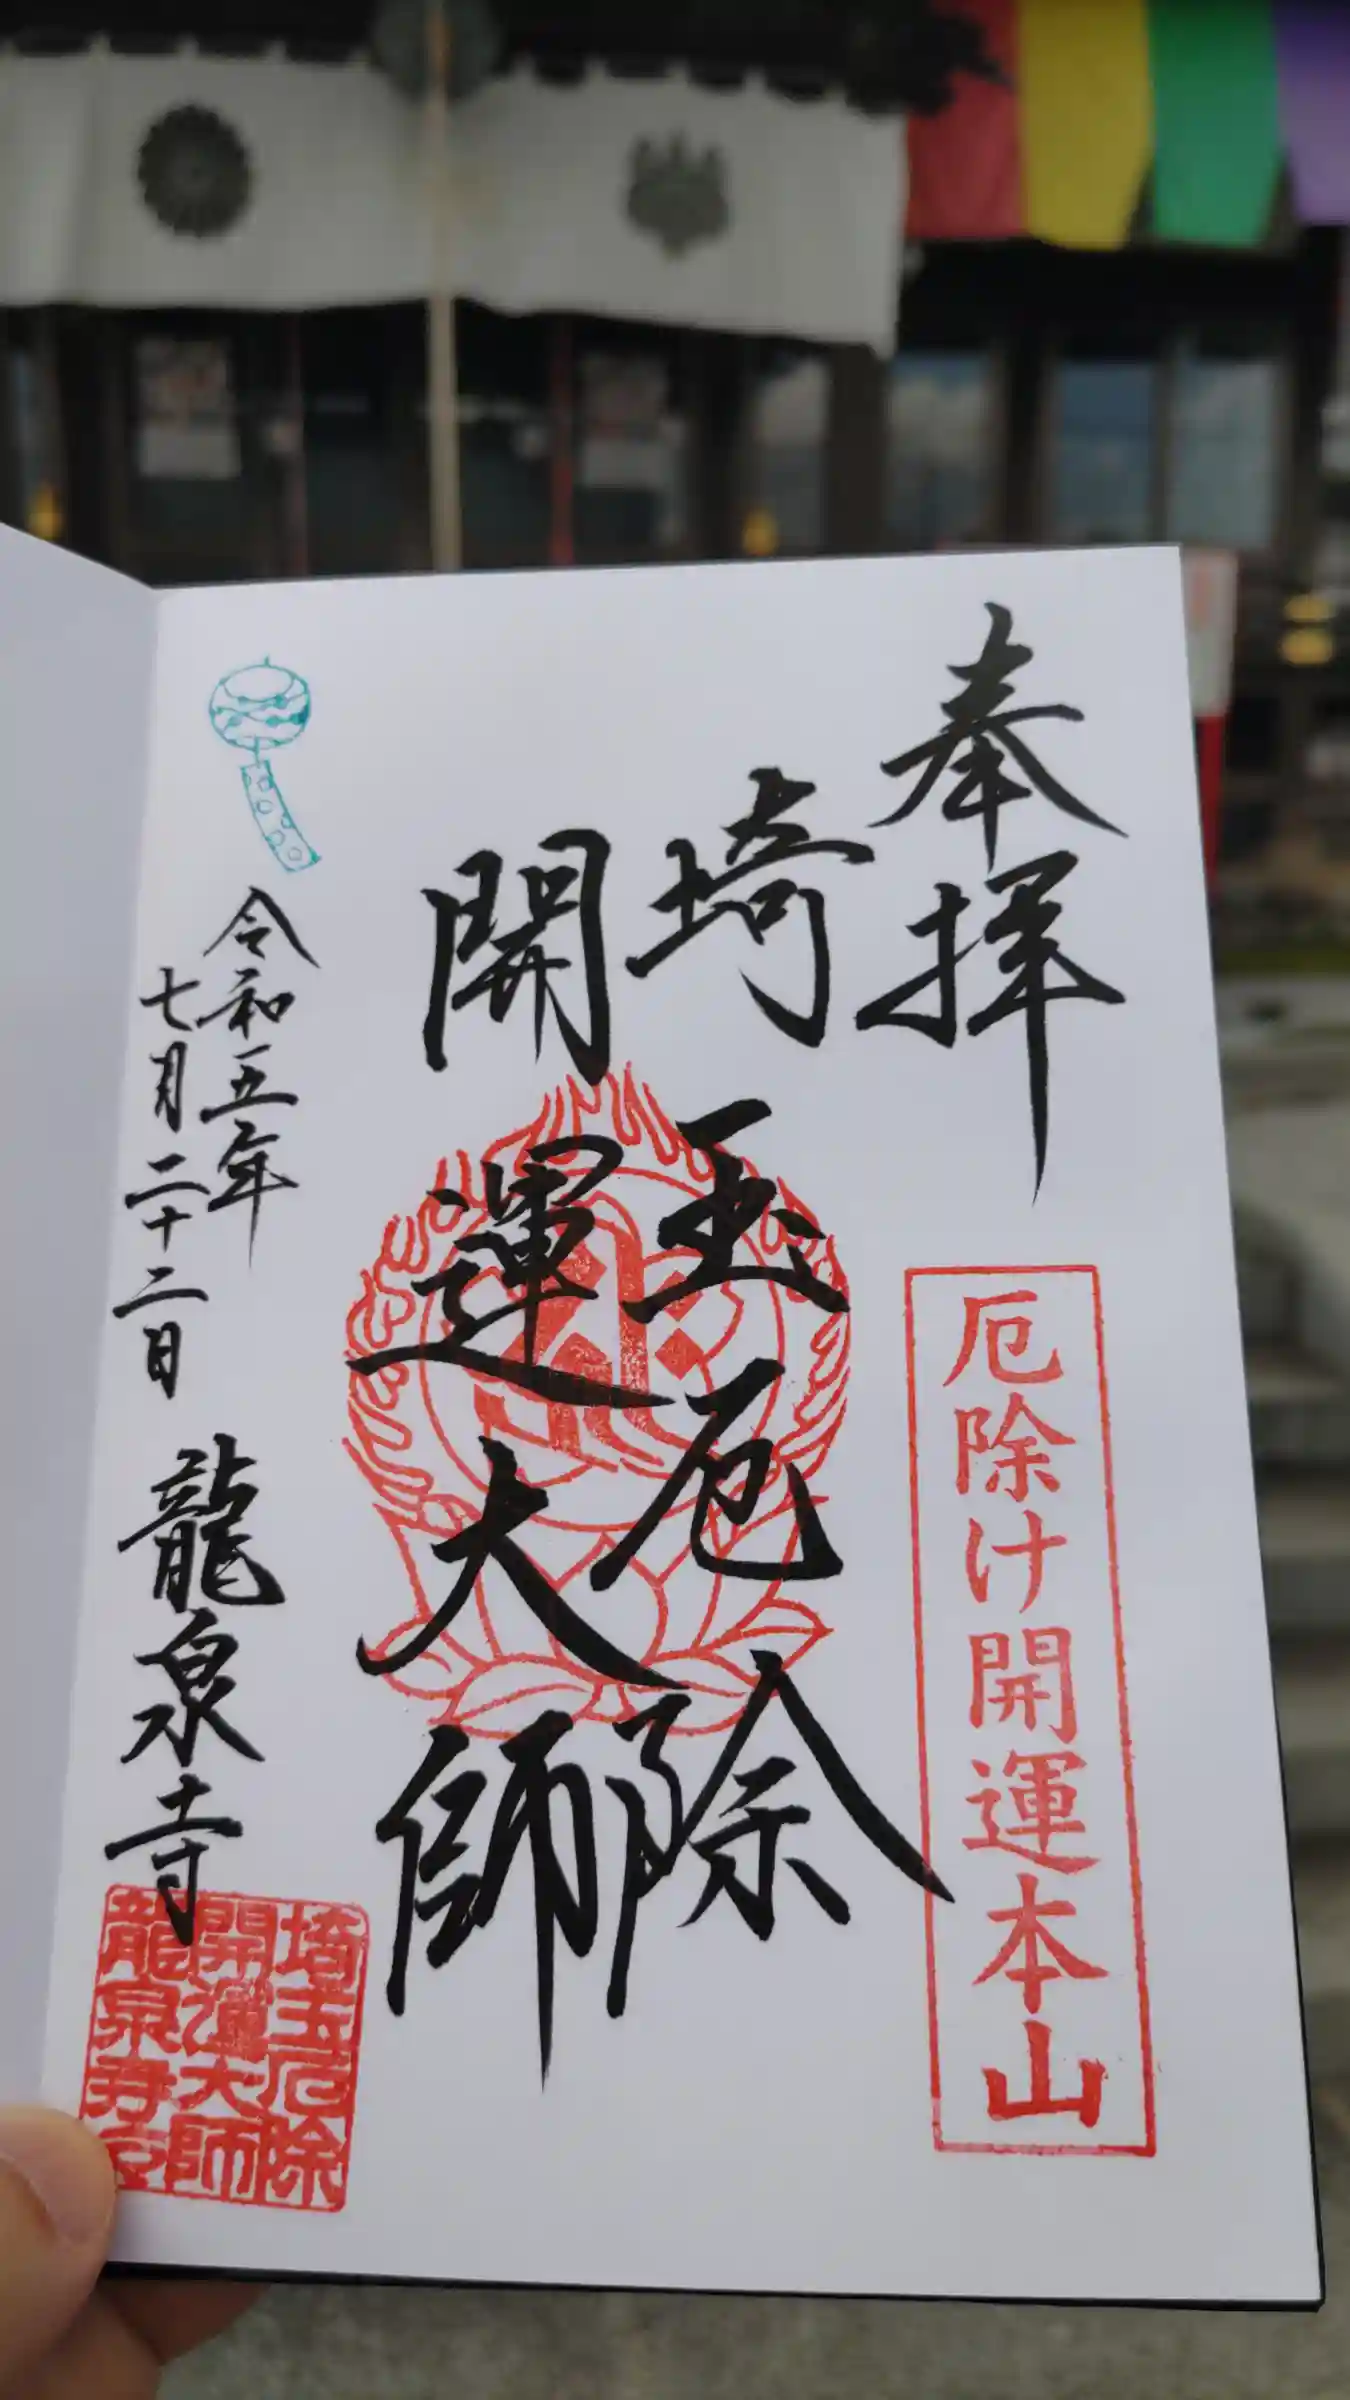 奉拝
厄除け開運本山
埼玉厄除
開運大師
令和五年
七月二十二日
龍泉寺
埼玉厄除
開運大師
龍泉寺